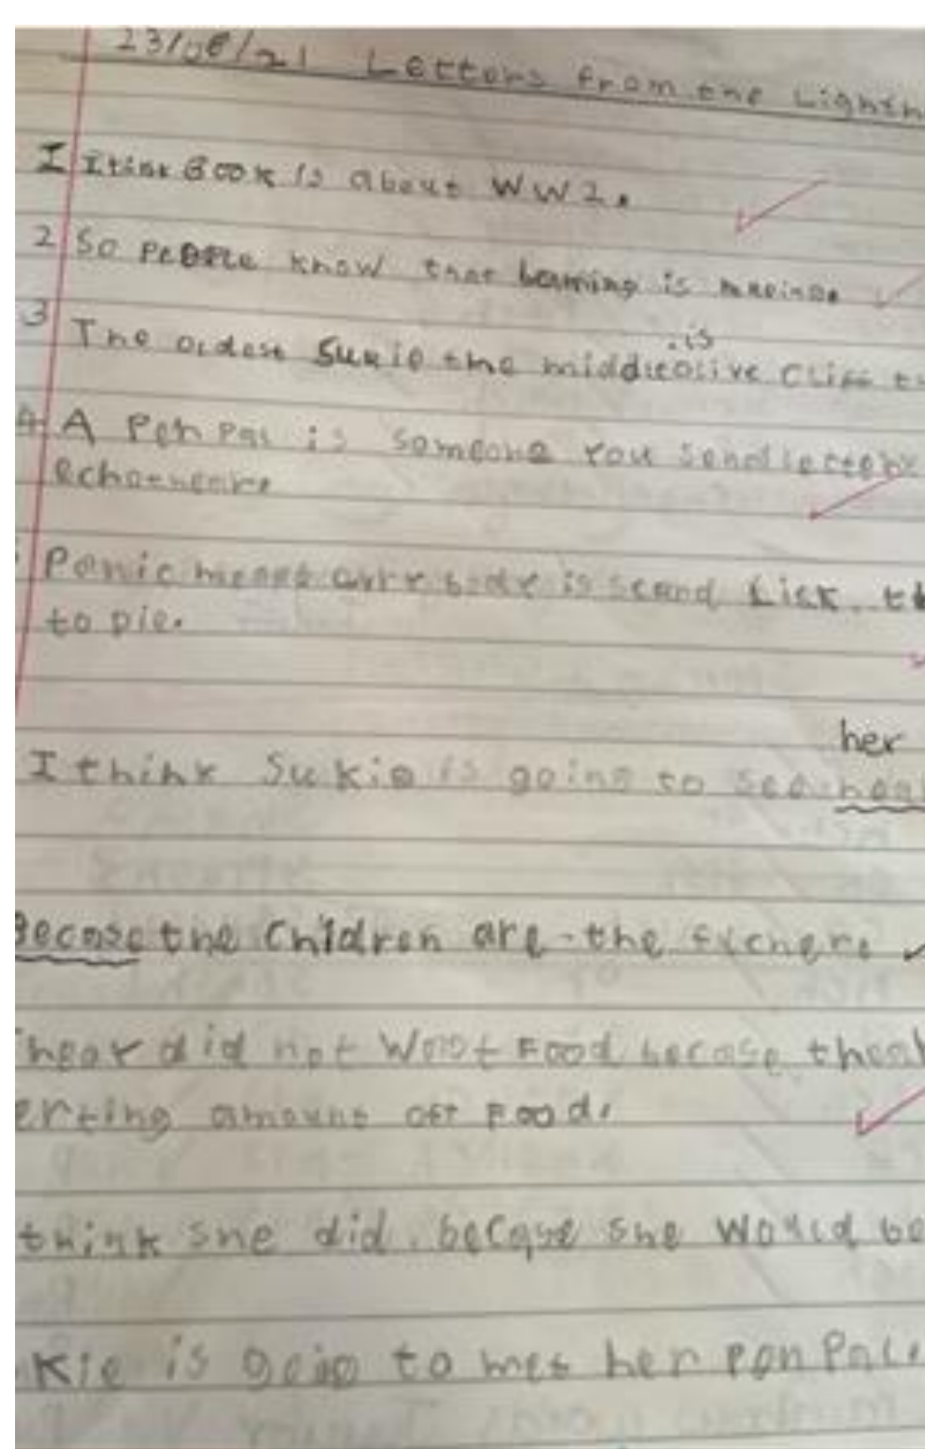 23/06/21 Letters from the Lighth
I I think Book is about WW2.
2 So People know that bombing is
is
3 The oldest Sukie the middle olive Cliff t
4 A Pen Pal is someone You send letters
echother.
Panic means is scared Lick. th
to Die.
her
I think Sukie is going to see
Becase the Children are the
did not Wast Food becase
erting amount off Food.
think She did. because She Would be
kie is to met her Pen Pal.